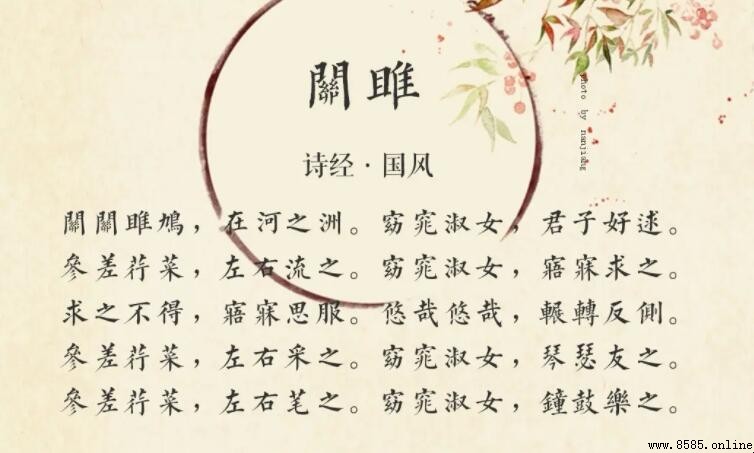 關雎
诗经·国风
關關雎鳩，在河之洲。窈窕淑女，君子好逑。
參差荇菜，左右流之。窈窕淑女，寤寐求之。
求之不得，寤寐思服。悠哉悠哉，輾轉反側。
參差荇菜，左右采之。窈窕淑女，琴瑟友之。
參差荇菜，左右笔之。窈窕淑女，鐘鼓樂之。
photo by nanjiang
www.8585.online